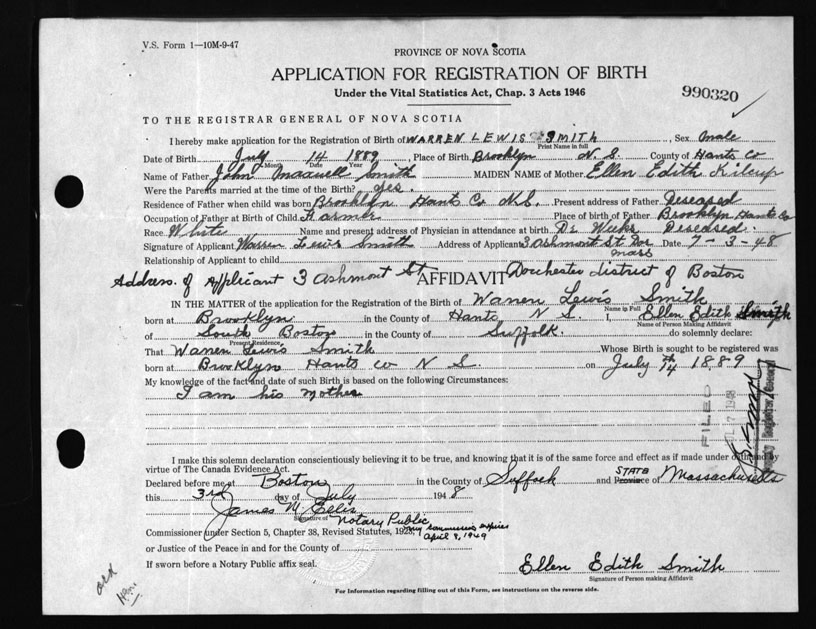 V.S. Form 1—10M-9-47
PROVINCE OF NOVA SCOTIA
APPLICATION FOR REGISTRATION OF BIRTH
Under the Vital Statistics Act, Chap. 3 Acts 1946
990320
TO THE REGISTRAR GENERAL OF NOVA SCOTIA
I hereby make application for the Registration of Birth of WARREN LEWIS SMITH, Sex male
Print Name in full
Date of Birth July 14 1889, Place of Birth Brooklyn N. S. County of Hants Co
Month Date Year
Name of Father John Maxwell Smith MAIDEN NAME of Mother Ellen Edith Kilcup
Were the Parents married at the time of the Birth? yes.
Residence of Father when child was born Brooklyn Hants Co N.S. Present address of Father Deseased
Occupation of Father at Birth of Child Farmer Place of Birth of Father Brooklyn Hants Co
Race White Name and present address of Physician in attendance at birth Dr Weeks Deseased.
Signature of Applicant Warren Lewis Smith Address of Applicant 3 Ashmont St. Dor Date 7-3-48
mass
Relationship of Applicant to child
Address of Applicant 3 Ashmont St AFFIDAVIT Dorchester district of Boston
IN THE MATTER of the application for the Registration of the Birth of Warren Lewis Smith
Name in Full
born at Brooklyn in the County of Hants N S. I, Ellen Edith Smith
Name of Person Making Affidavit
of South Boston in the County of Suffolk. do solemnly declare:
Present Residence
That Warren Lewis Smith Whose Birth is sought to be registered was
born at Brooklyn Hants co N S. on July 14th 1889
My knowledge of the fact and date of such Birth is based on the following Circumstances:
I am his mother
FILED
1948
I make this solemn declaration conscientiously believing it to be true, and knowing that it is of the same force and effect as if made under oath and by
virtue of The Canada Evidence Act.
Declared before me at Boston in the County of Suffolk and Province STATE of Massachusetts
this 3rd day of July 1948
James M. Ellis
Signature of Notary Public
Commissioner under Section 5, Chapter 38, Revised Statutes, 1923, my commission expires
April 8, 1949
or Justice of the Peace in and for the County of
If sworn before a Notary Public affix seal.
Ellen Edith Smith
Signature of Person making Affidavit
For information regarding filling out of this Form, see instructions on the reverse side.